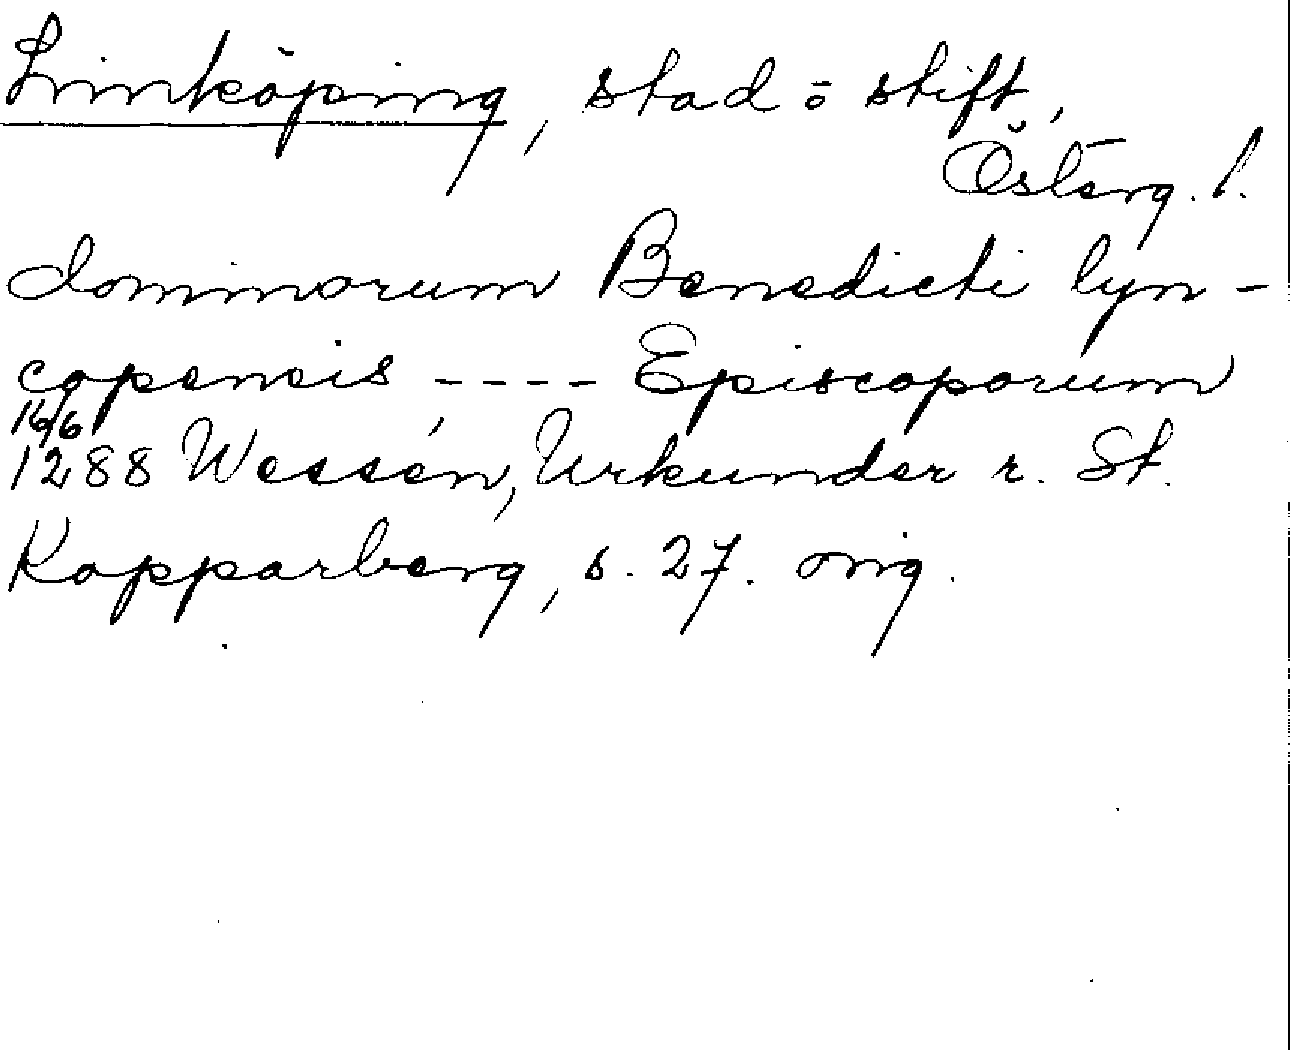 Linköping, stad o stift,
Österg. l.
dominorum Benedicti lyn-
copensis, ---- Episcoporum
16/6
1288 Wessén, Urkunder r. St.
Kopparberg, s. 27. orig.